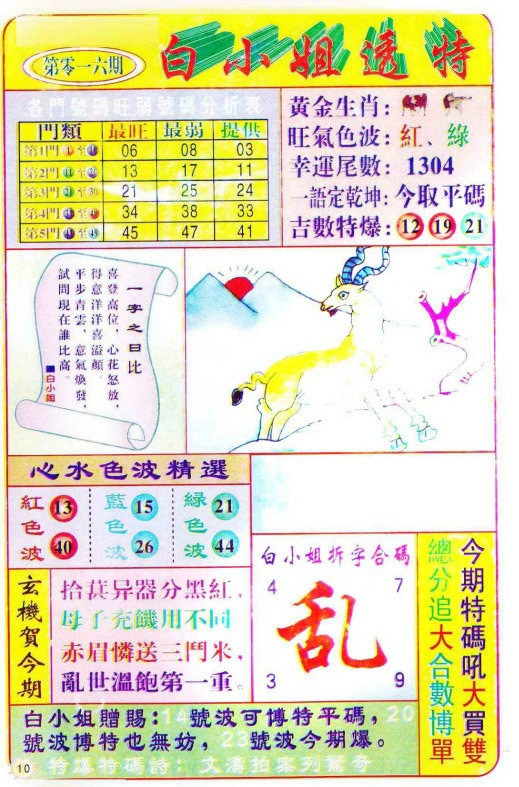 第零一六期
白小姐透特
各門號碼旺弱號碼分析表
門類 最旺 最弱 提供
第1門 1 至 06 08 03
第2門 至 13 17 11
第3門 至 21 25 24
第4門 至 34 38 33
第5門 至 49 45 47 41
黃金生肖:
旺氣色波: 紅、綠
幸運尾數: 1304
一語定乾坤: 今取平碼
吉數特爆: 12 19 21
一字之曰比
喜登高位，心花怒放，
得意洋洋喜溢顏。
平步青雲，意氣煥發，
試問現在誰比高。
■白小姐
心水色波精選
紅色波 13 40
藍色波 15 26
綠色波 21 44
玄機賀今期
拾葚异器分黑紅，
母子充饑用不同
赤眉憐送三鬥米，
亂世溫飽第一重。
白小姐拆字合碼
4 7
乱
3 9
今期特碼吼大買雙
總分追大合數博單
白小姐贈賜: 14 號波可博特平碼，20
號波博特也無妨，23 號波今期爆。
特爆特碼詩: 文濤拍案列驚奇
10